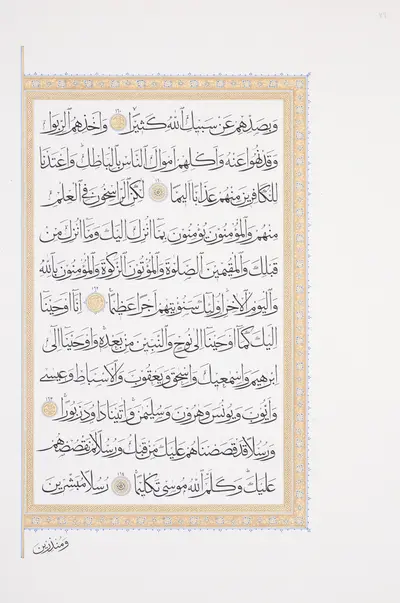 ٧٦
وَبِصَدِّهِمْ عَن سَبِيلِ اللّٰهِ كَثِيرًا ١٦٠ وَأَخْذِهِمُ الرِّبَوٰا
وَقَدْ نُهُوا عَنْهُ وَأَكْلِهِمْ أَمْوَالَ النَّاسِ بِالْبَاطِلِ وَأَعْتَدْنَا
لِلْكَافِرِينَ مِنْهُمْ عَذَابًا أَلِيمًا ١٦١ لٰكِنِ الرَّاسِخُونَ فِي الْعِلْمِ
مِنْهُمْ وَالْمُؤْمِنُونَ يُؤْمِنُونَ بِمَا أُنْزِلَ إِلَيْكَ وَمَا أُنْزِلَ مِن
قَبْلِكَ وَالْمُقِيمِينَ الصَّلٰوةَ وَالْمُؤْتُونَ الزَّكٰوةَ وَالْمُؤْمِنُونَ بِاللّٰهِ
وَالْيَوْمِ الْآخِرِ أُولٰئِكَ سَنُؤْتِيهِمْ أَجْرًا عَظِيمًا ١٦٢ إِنَّا أَوْحَيْنَا
إِلَيْكَ كَمَا أَوْحَيْنَا إِلَى نُوحٍ وَالنَّبِيِّينَ مِن بَعْدِهِ وَأَوْحَيْنَا إِلَى
إِبْرٰهِيمَ وَإِسْمٰعِيلَ وَإِسْحٰقَ وَيَعْقُوبَ وَالْأَسْبَاطِ وَعِيسَى
وَأَيُّوبَ وَيُونُسَ وَهٰرُونَ وَسُلَيْمٰنَ وَآتَيْنَا دَاوُدَ زَبُورًا ١٦٣
وَرُسُلًا قَدْ قَصَصْنَاهُمْ عَلَيْكَ مِن قَبْلُ وَرُسُلًا لَمْ نَقْصُصْهُمْ
عَلَيْكَ وَكَلَّمَ اللّٰهُ مُوسَى تَكْلِيمًا ١٦٤ رُسُلًا مُبَشِّرِينَ
وَمُنْذِرِينَ